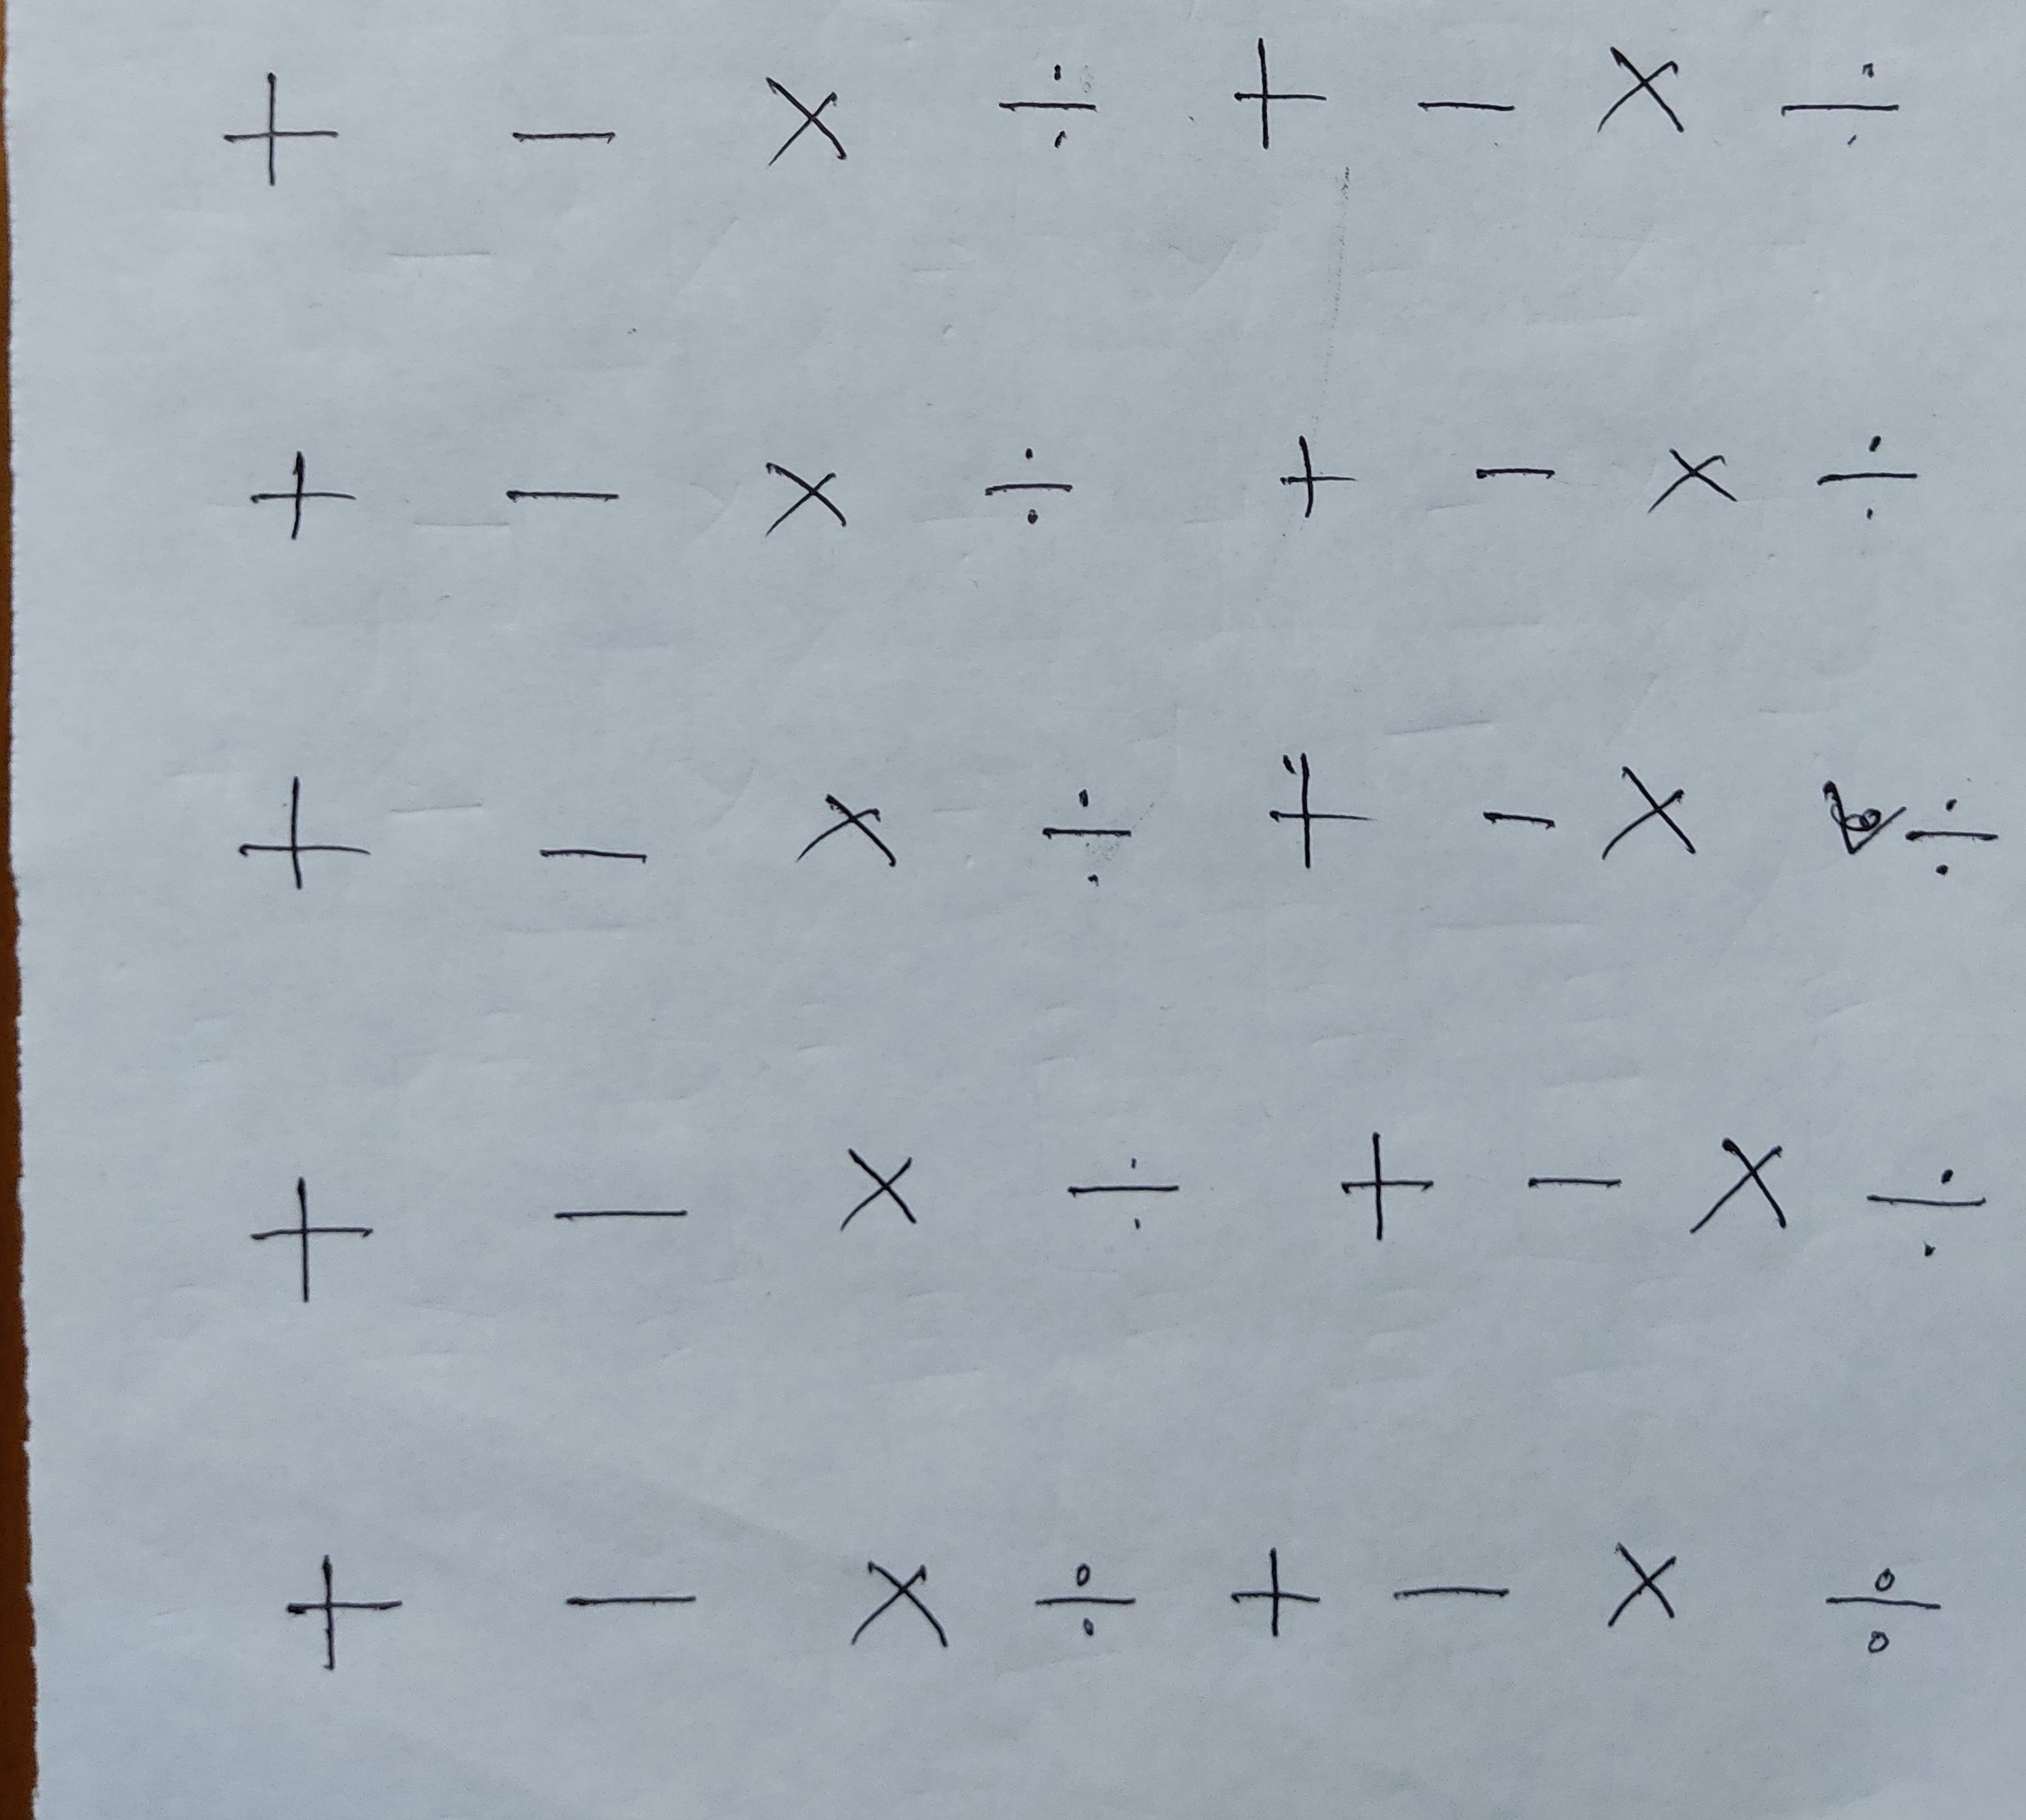 + − × ÷ + − × ÷
+ − × ÷ + − × ÷
+ − × ÷ + − × ÷
+ − × ÷ + − × ÷
+ − × ÷ + − × ÷